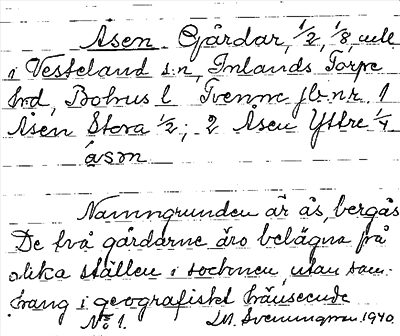 Åsen Gårdar, 1/2, 1/8, mtl
i Vesteland s:n, Inlands Torpe
hrd, Bohus l Tvenne jbnr. 1
Åsen Stora 1/2; 2 Åsen Yttre 1/4
åsɔn
Namngrunden är ås, bergås
De två gårdarne äro belägna på
olika ställen i socknen, utan sam-
hang i geografiskt hänseende
No 1. LM. Svenungsson 1940